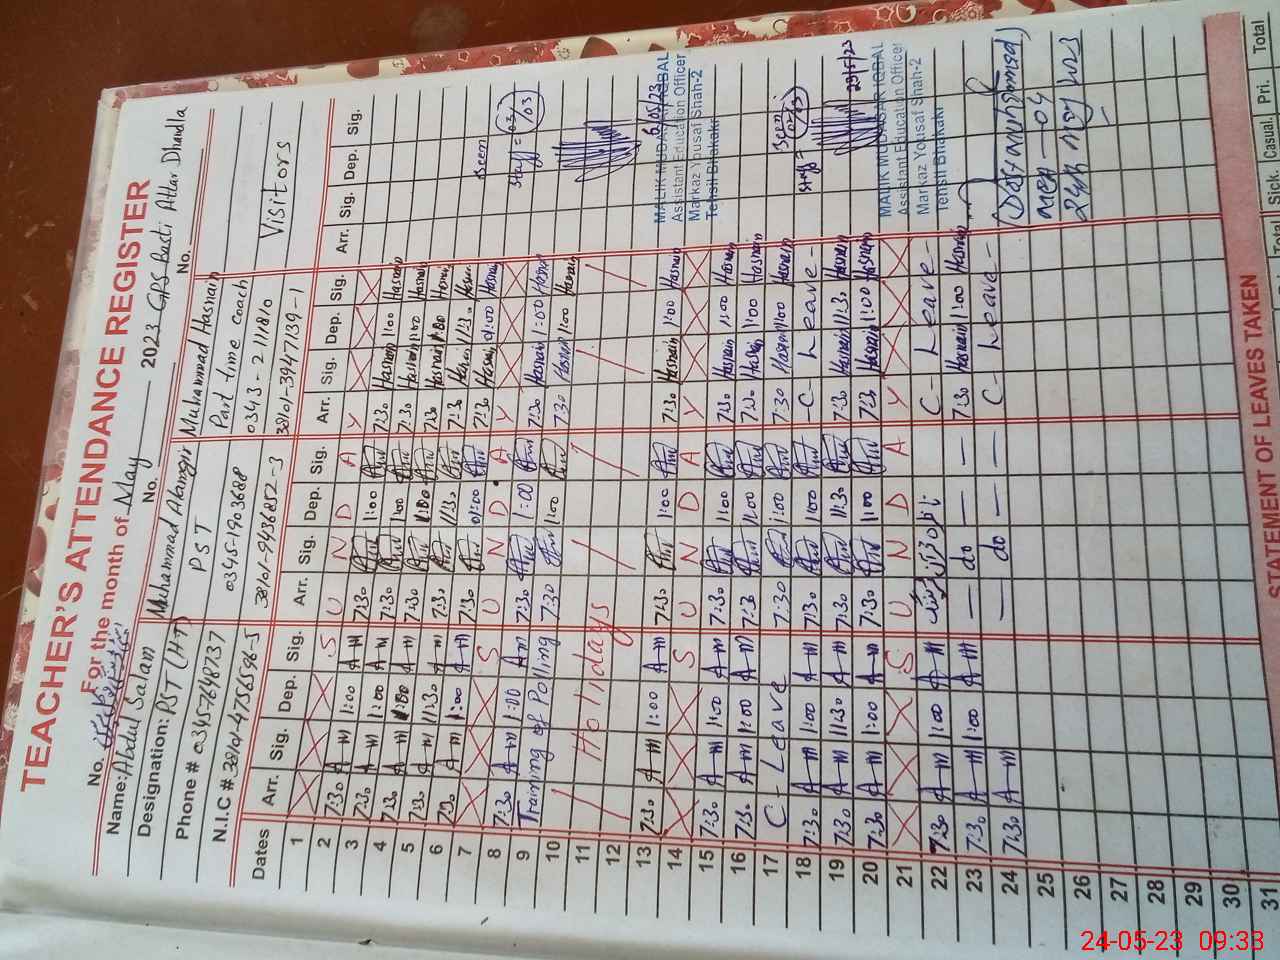 TEACHER'S ATTENDANCE REGISTER
For the month of May 2023 GPS Basti Attar Dhandla
No. No. No.
Name: Abdul Salam Muhammad Alamgir Muhammad Hasnain
Designation: PST (HT) PST Part time coach Visitors
Phone # 03457648737 0345-1903688 0343-2111810
N.I.C # 38101-4756596-5 38101-9436852-3 38101-3947139-1
Dates Arr. Sig. Dep. Sig. Arr. Sig. Dep. Sig. Arr. Sig. Dep. Sig. Arr. Sig. Dep. Sig.
1 S U N D A Y
2 7:30 A-m 1:00 A-m 7:30 1:00 7:30 Hasnain 1:00 Hasnain
3 7:30 A-m 1:00 A-m 7:30 1:00 7:30 Hasnain 1:00 Hasnain
4 7:30 A-m 1:00 A-m 7:30 1:00 7:30 Hasnain 1:00 Hasnain
5 7:30 A-m 11:30 A-m 7:30 11:30 7:30 Hasnain 11:30 Hasnain
6 7:30 A-m 1:00 A-m 7:30 01:00 7:30 Hasnain 01:00 Hasnain Seen
7 S U N D A Y Staff = 03/03
8 7:30 A-m 1:00 A-m 7:30 1:00 7:30 Hasnain 1:00 Hasnain
9 Training of Polling 7:30 1:00 7:30 Hasnain 1:00 Hasnain
10
11 Holindays
12
13 7:30 A-m 1:00 A-m 7:30 1:00 7:30 Hasnain 1:00 Hasnain
MALIK MUDASAR IQBAL
Assistant Education Officer
Markaz Yousaf Shah-2
Tehsil Bhakakr
14 S U N D A Y
15 7:30 A-m 1:00 A-m 7:30 1:00 7:30 Hasnain 1:00 Hasnain
16 7:30 A-m 1:00 A-m 7:30 1:00 7:30 Hasnain 1:00 Hasnain
17 C - Leave 7:30 1:00 7:30 Hasnain 1:00 Hasnain Seen
18 7:30 A-m 1:00 A-m 7:30 1:00 - C - Leave - Staff =
19 7:30 A-m 11:30 A-m 7:30 11:30 7:30 Hasnain 11:30 Hasnain
20 7:30 A-m 1:00 A-m 7:30 1:00 7:30 Hasnain 1:00 Hasnain 23/5/23
MALIK MUDASAR IQBAL
Assistant Education Officer
Markaz Yousaf Shah-2
Tehsil Bhakakr
21 S U N D A Y
22 7:30 A-m 1:00 A-m C - Leave -
23 7:30 A-m 1:00 A-m — do — — 7:30 Hasnain 1:00 Hasnain
24 7:30 A-m — do — — C - Leave -
MEA - 04
24th May 2023
25
26
27
28
29
30
31
STATEMENT OF LEAVES TAKEN
Total Sick. Casual. Pri. Total
24-05-23 09:33